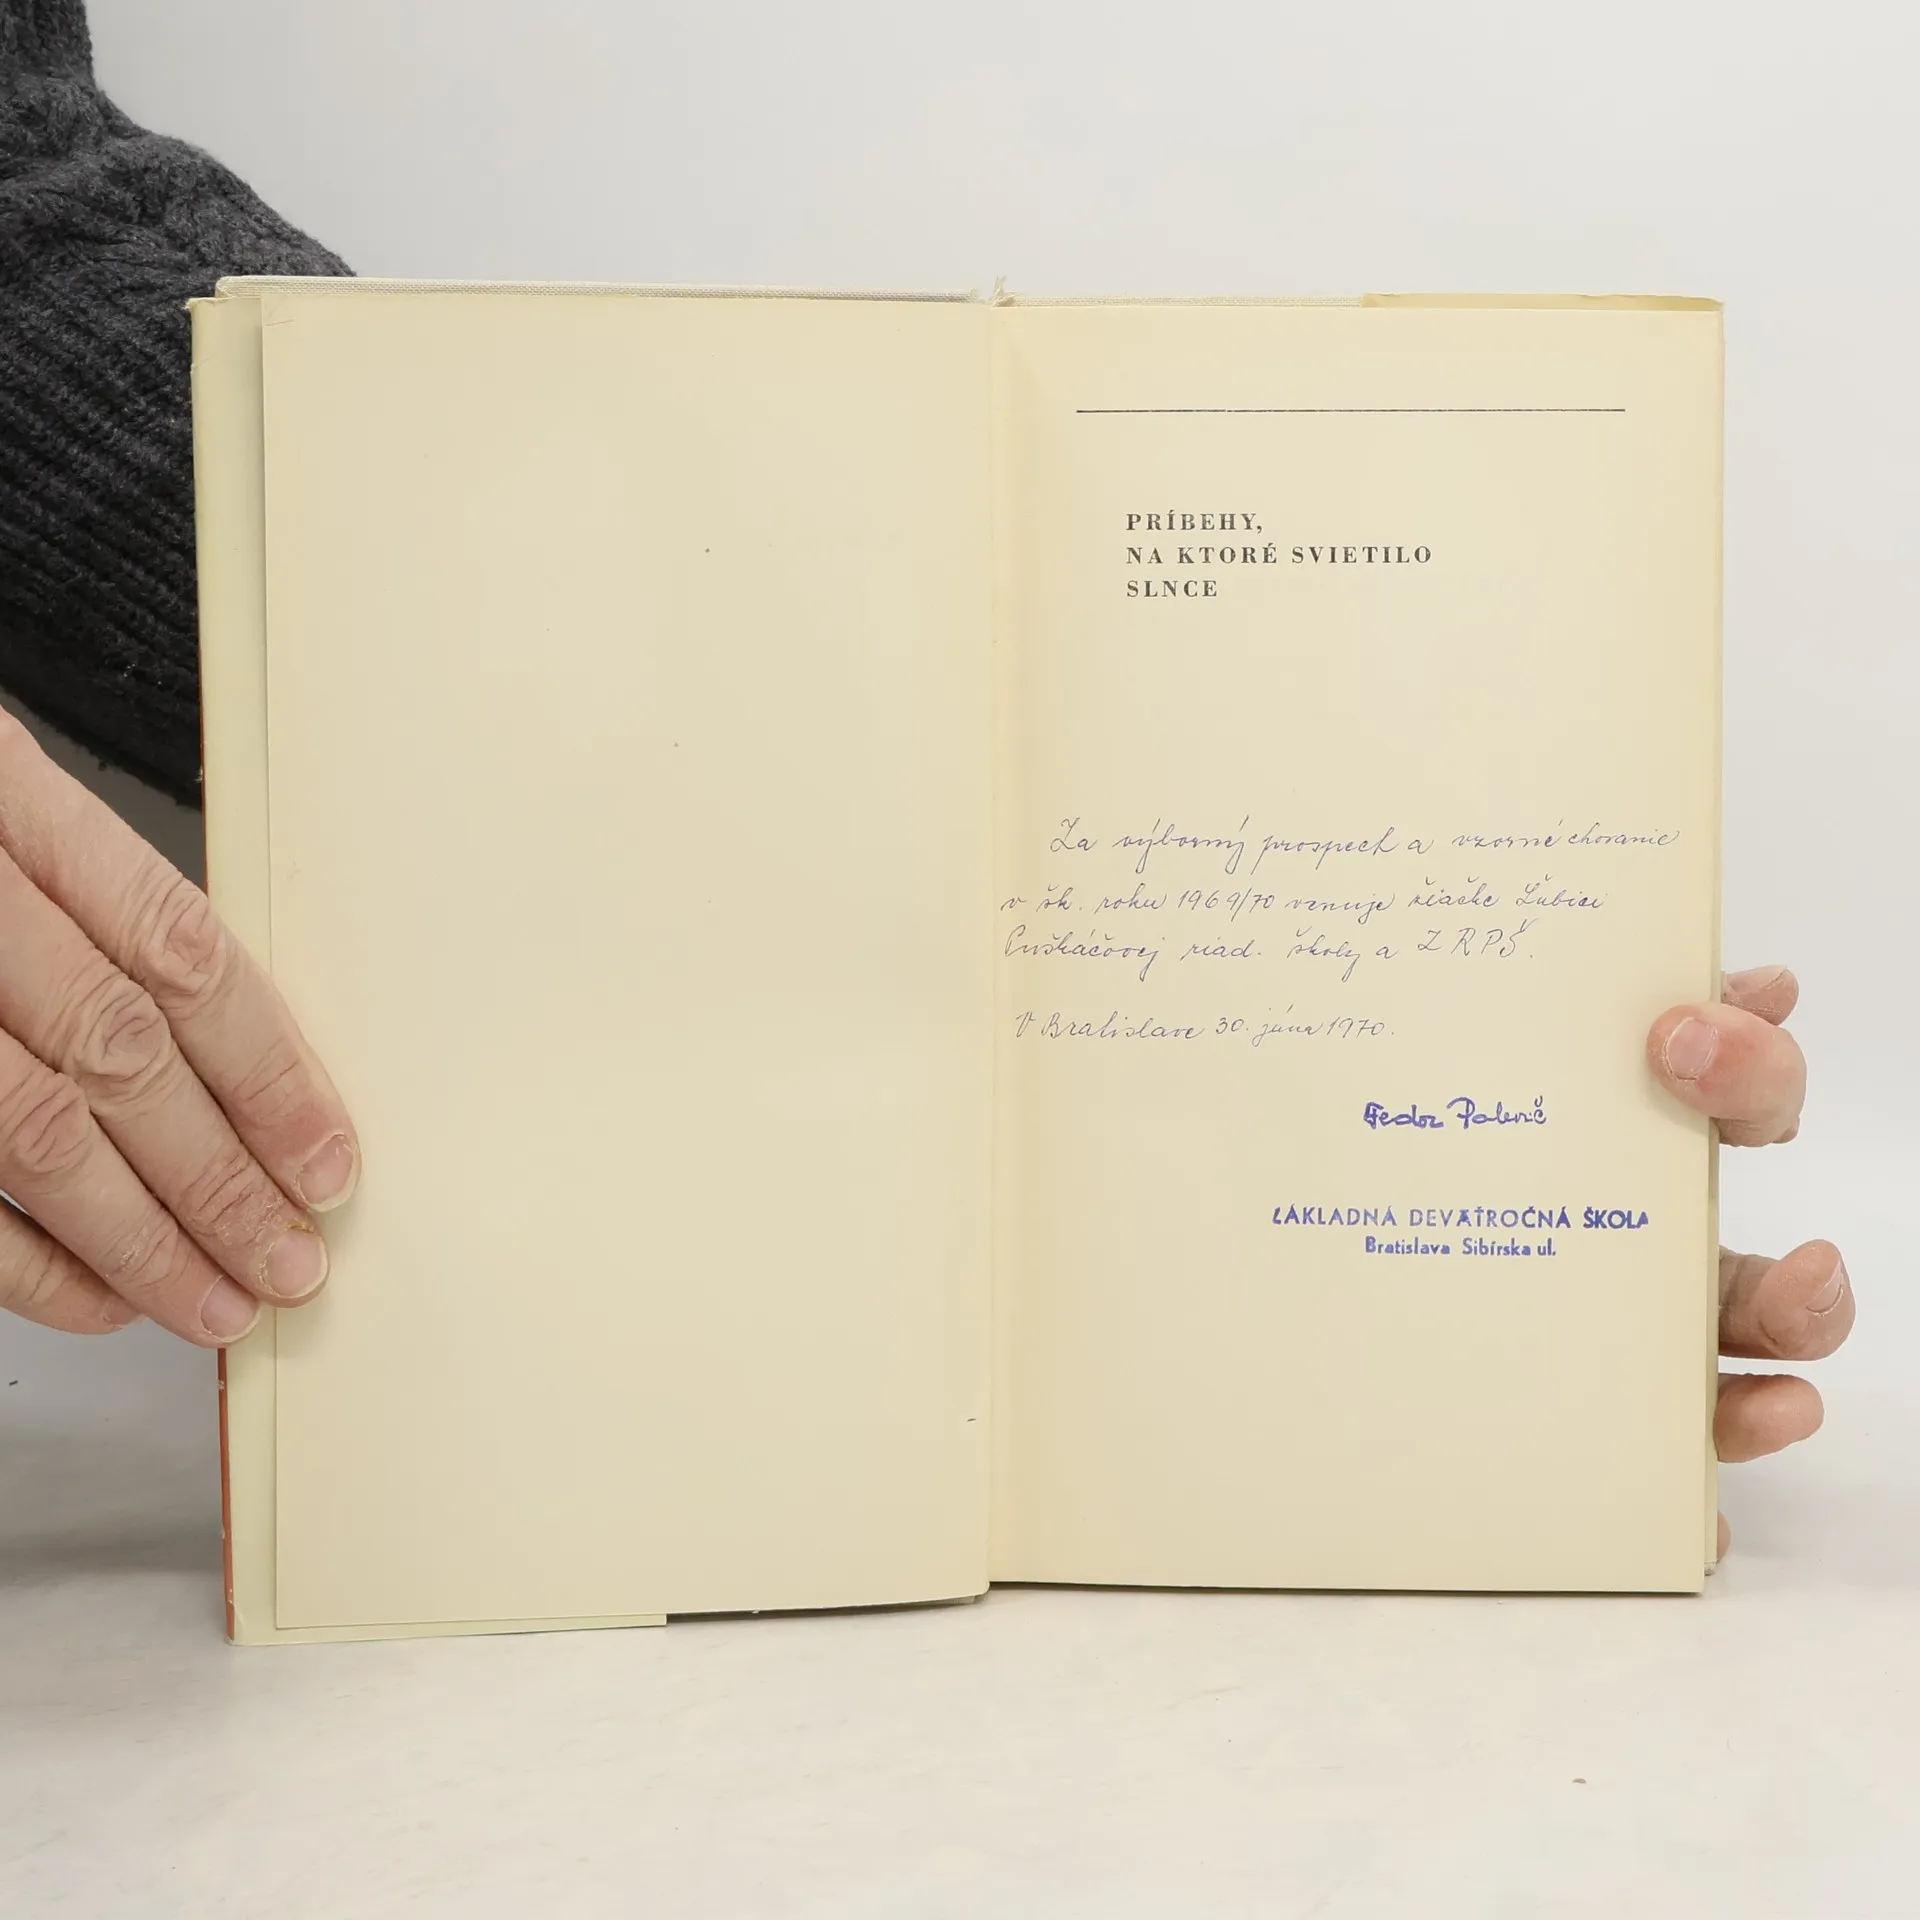 PRÍBEHY,
NA KTORÉ SVIETILO
SLNCE
Za výborný prospech a vzorné chovanie
v šk. roku 1969/70 venuje žiačke Ľubici
Puškáčovej riad. školy a ZRPŠ.
V Bratislave 30. júna 1970.
Fedor
ZÁKLADNÁ DEVÄŤROČNÁ ŠKOLA
Bratislava Sibírska ul.